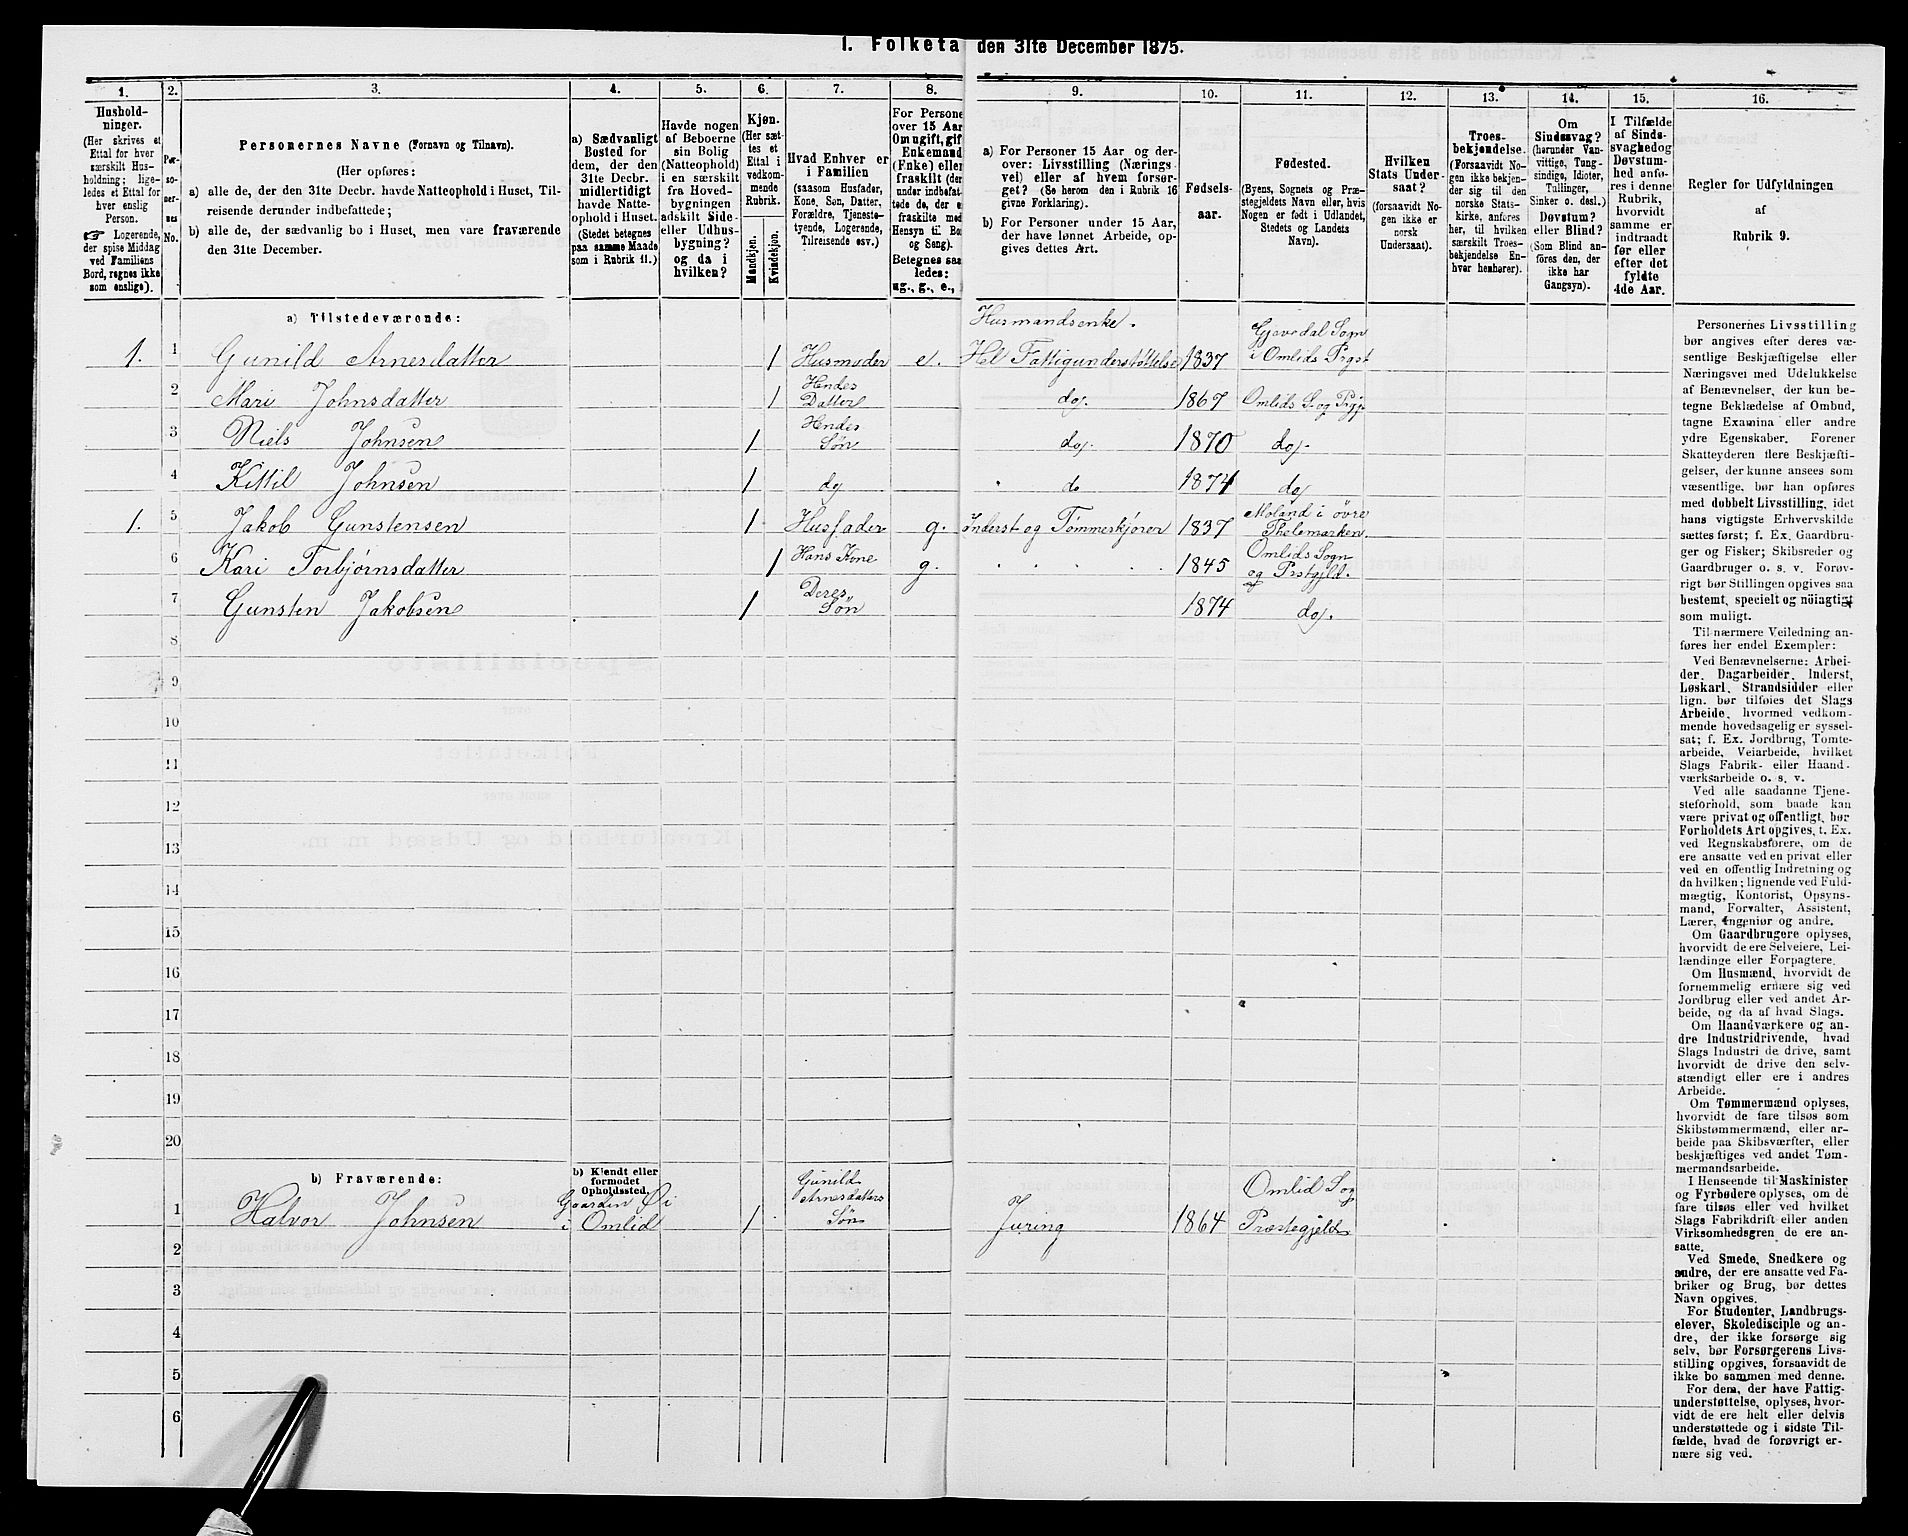 1. Folketa den 31te December 1875.
1. 2. 3. 4. 5. 6. 7. 8. 9. 10. 11. 12. 13. 14. 15. 16.
Hushold-
ninger.
(Her skrives et
Ettal for hver
særskilt Hus-
holdning; lige-
ledes et Ettal for
hver enslig
Person.
☞ Logerende,
der spise Middag
ved Familiens
Bord, regnes ikke
som enslige).
Per-
so-
ner-
nes
No.
Personernes Navne (Fornavn og Tilnavn).
(Her opføres:
a) alle de, der den 31te Decbr. havde Natteophold i Huset, Til-
reisende derunder indbefattede;
b) alle de, der sædvanlig bo i Huset, men vare fraværende
den 31te December.
a) Sædvanligt
Bosted for
dem, der den
31te Decbr.
midlertidigt
havde Natte-
ophold i Huset.
(Stedet betegnes
paa samme Maade
som i Rubrik 11.)
Havde nogen
af Beboerne
sin Bolig
(Natteophold)
i en særskilt
fra Hoved-
bygningen
adskilt Side-
eller Udhus-
bygning?
og da i
hvilken?
Kjøn.
(Her sæt-
tes et
Ettal i
vedkom-
mende
Rubrik.)
Mandkjøn.
Kvindekjøn.
Hvad Enhver er
i Familien
(saasom Husfader,
Kone, Søn, Datter,
Forældre, Tjeneste-
tyende, Logerende,
Tilreisende osv.)
For Persone
over 15 Aar
Om ugift, gif
Enkemand
(Enke) elle
fraskilt (der
under indbefat-
tede de, der e
fraskilte med
Hensyn til Bo
og Seng).
Betegnes saa
ledes:
ug., g., e.,
a) For Personer 15 Aar og der-
over: Livsstilling (Nærings-
vei) eller af hvem forsør-
get? (Se herom den i Rubrik 16
givne Forklaring).
b) For Personer under 15 Aar,
der have lønnet Arbeide, op-
gives dettes Art.
Fødsels-
aar.
Fødested.
(Byens, Sognets og Præ-
stegjeldets Navn eller, hvis
Nogen er født i Udlandet,
Stedets og Landets
Navn).
Hvilken
Stats Under-
saat?
(forsaavidt No-
gen ikke er
norsk
Undersaat).
Troes-
bekjendelse.
(Forsaavidt No-
gen ikke bekjen-
der sig til den
norske Stats-
kirke, anføres
her, til hvilken
særskilt Troes-
bekjendelse En-
hver henhører).
Om
Sindssvag?
(herunder Van-
vittige, Tung-
sindige, Idioter,
Tullinger,
Sinker o. desl.)
Døvstum?
eller Blind?
(Som Blind an-
føres den, der
ikke har
Gangsyn).
I Tilfælde
af Sinds-
svaghed og
Døvstum-
hed anfø-
res i denne
Rubrik,
hvorvidt
samme er
indtraadt
før eller
efter det
fyldte
4de Aar.
Regler for Udfyldningen
af
Rubrik 9.
a) Tilstedeværende:
Husmandsenke. Gjevedal Sogn
1. 1 Gunild Arnesdatter 1 Husmoder e. Hel Fattigunderstøttelse 1837 i Omlids Prgst
2 Mari Johnsdatter 1 Hendes Datter do. 1867 Omlids S. og Prgj.
3 Niels Johnsen 1 Hendes Søn do. 1870 do.
4 Kittil Johnsen 1 do do 1874 do
1. 5 Jakob Gunstensen 1 Husfader g. Inderst og Tømmerkjører 1837 Moland i øvre Thelemarken
6 Kari Torbjørnsdatter 1 Hans Kone g. 1845 Omlids Sogn og Prstgjeld.
7 Gunsten Jakobsen 1 Deres Søn 1874 do.
8
9
10
11
12
13
14
15
16
17
18
19
20
b) Fraværende:
b) Kjendt eller
formodet
Opholdssted.
1 Halvor Johnsen Gaarden Øi i Omlid 1 Gunild Arnesdatters Søn 1864 Omlid Sog Præstegjeld
2
3
4
5
6
Personernes Livsstilling
bør angives efter deres væ-
sentlige Beskjæftigelse eller
Næringsvei med Udelukkelse
af Benævnelser, der kun be-
tegne Beklædelse af Ombud,
tagne Examina eller andre
ydre Egenskaber. Forener
Skatteyderen flere Beskjæfti-
gelser, der kunne ansees som
væsentlige, bør han opføres
med dobbelt Livsstilling, idet
hans vigtigste Erhvervskilde
sættes først; f. Ex. Gaardbru-
ger og Fisker; Skibsreder og
Gaardbruger o. s. v. Forøv-
rigt bør Stillingen opgives saa
bestemt, specielt og nöiagtigt
som muligt.
Til nærmere Veiledning an-
føres her endel Exempler:
Ved Benævnelserne: Arbei-
der, Dagarbeider, Inderst,
Løskarl, Strandsidder eller
lign. bør tilføies det Slags
Arbeide, hvormed vedkom-
mende hovedsagelig er syssel-
sat; f. Ex. Jordbrug, Tomte-
arbeide, Veiarbeide, hvilket
Slags Fabrik- eller Haand-
værksarbeide o. s. v.
Ved alle saadanne Tjene-
steforhold, som baade kan
være privat og offentligt, bør
Forholdets Art opgives, t. Ex.
ved Regnskabsførere, om de
ere ansatte ved en privat eller
ved en offentlig Indretning og
da hvilken; lignende ved Fuld-
mægtig, Kontorist, Opsyns-
mand, Forvalter, Assistent,
Lærer, Ingeniør og andre.
Om Gaardbrugere oplyses,
hvorvidt de ere Selveiere, Lei-
lændinge eller Forpagtere.
Om Husmænd, hvorvidt de
fornemmelig ernære sig ved
Jordbrug eller ved andet Ar-
beide, og da af hvad Slags.
Om Haandværkere og an-
dre Industridrivende, hvad
Slags Industri de drive, samt
hvorvidt de drive den selv-
stændigt eller ere i andres
Arbeide.
Om Tømmermænd oplyses,
hvorvidt de fare tilsøs som
Skibstømmermænd, eller ar-
beide paa Skibsværfter, eller
beskjæftiges ved andet Tøm-
mermandsarbeide.
I Henseende til Maskinister
og Fyrbødere oplyses, om de
fare tilsøs eller ved hvilket
Slags Fabrikdrift eller anden
Virksomhedsgren de ere an-
satte.
Ved Smede, Snedkere og
andre, der ere ansatte ved Fa-
briker og Brug, bør dettes
Navn opgives.
For Studenter, Landbrugs-
elever, Skoledisciple og an-
dre, der ikke forsørge sig
selv, bør Forsørgerens Livs-
stilling opgives, forsaavidt de
ikke bo sammen med denne.
For dem, der have Fattig-
understøttelse, oplyses, hvor-
vidt de ere helt eller delvis
understøttede og i sidste Til-
fælde, hvad de forøvrigt er-
nære sig ved.